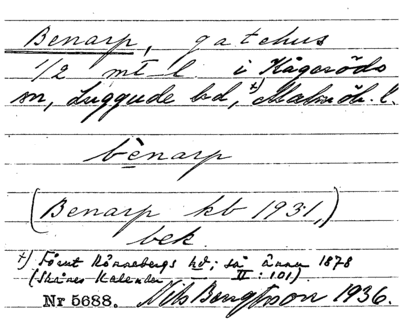 Benarp, gatehus
1/2 mt l i Kågeröds
sn, Luggude hd, +) Malmöh. l.
bènarp
(Benarp kb 1931,)
bek.
+) Förut Rönnebergs hd; så ännu 1878
(Skånes Kalender II: 101)
Nr 5688. Nils Bengtsson 1936.